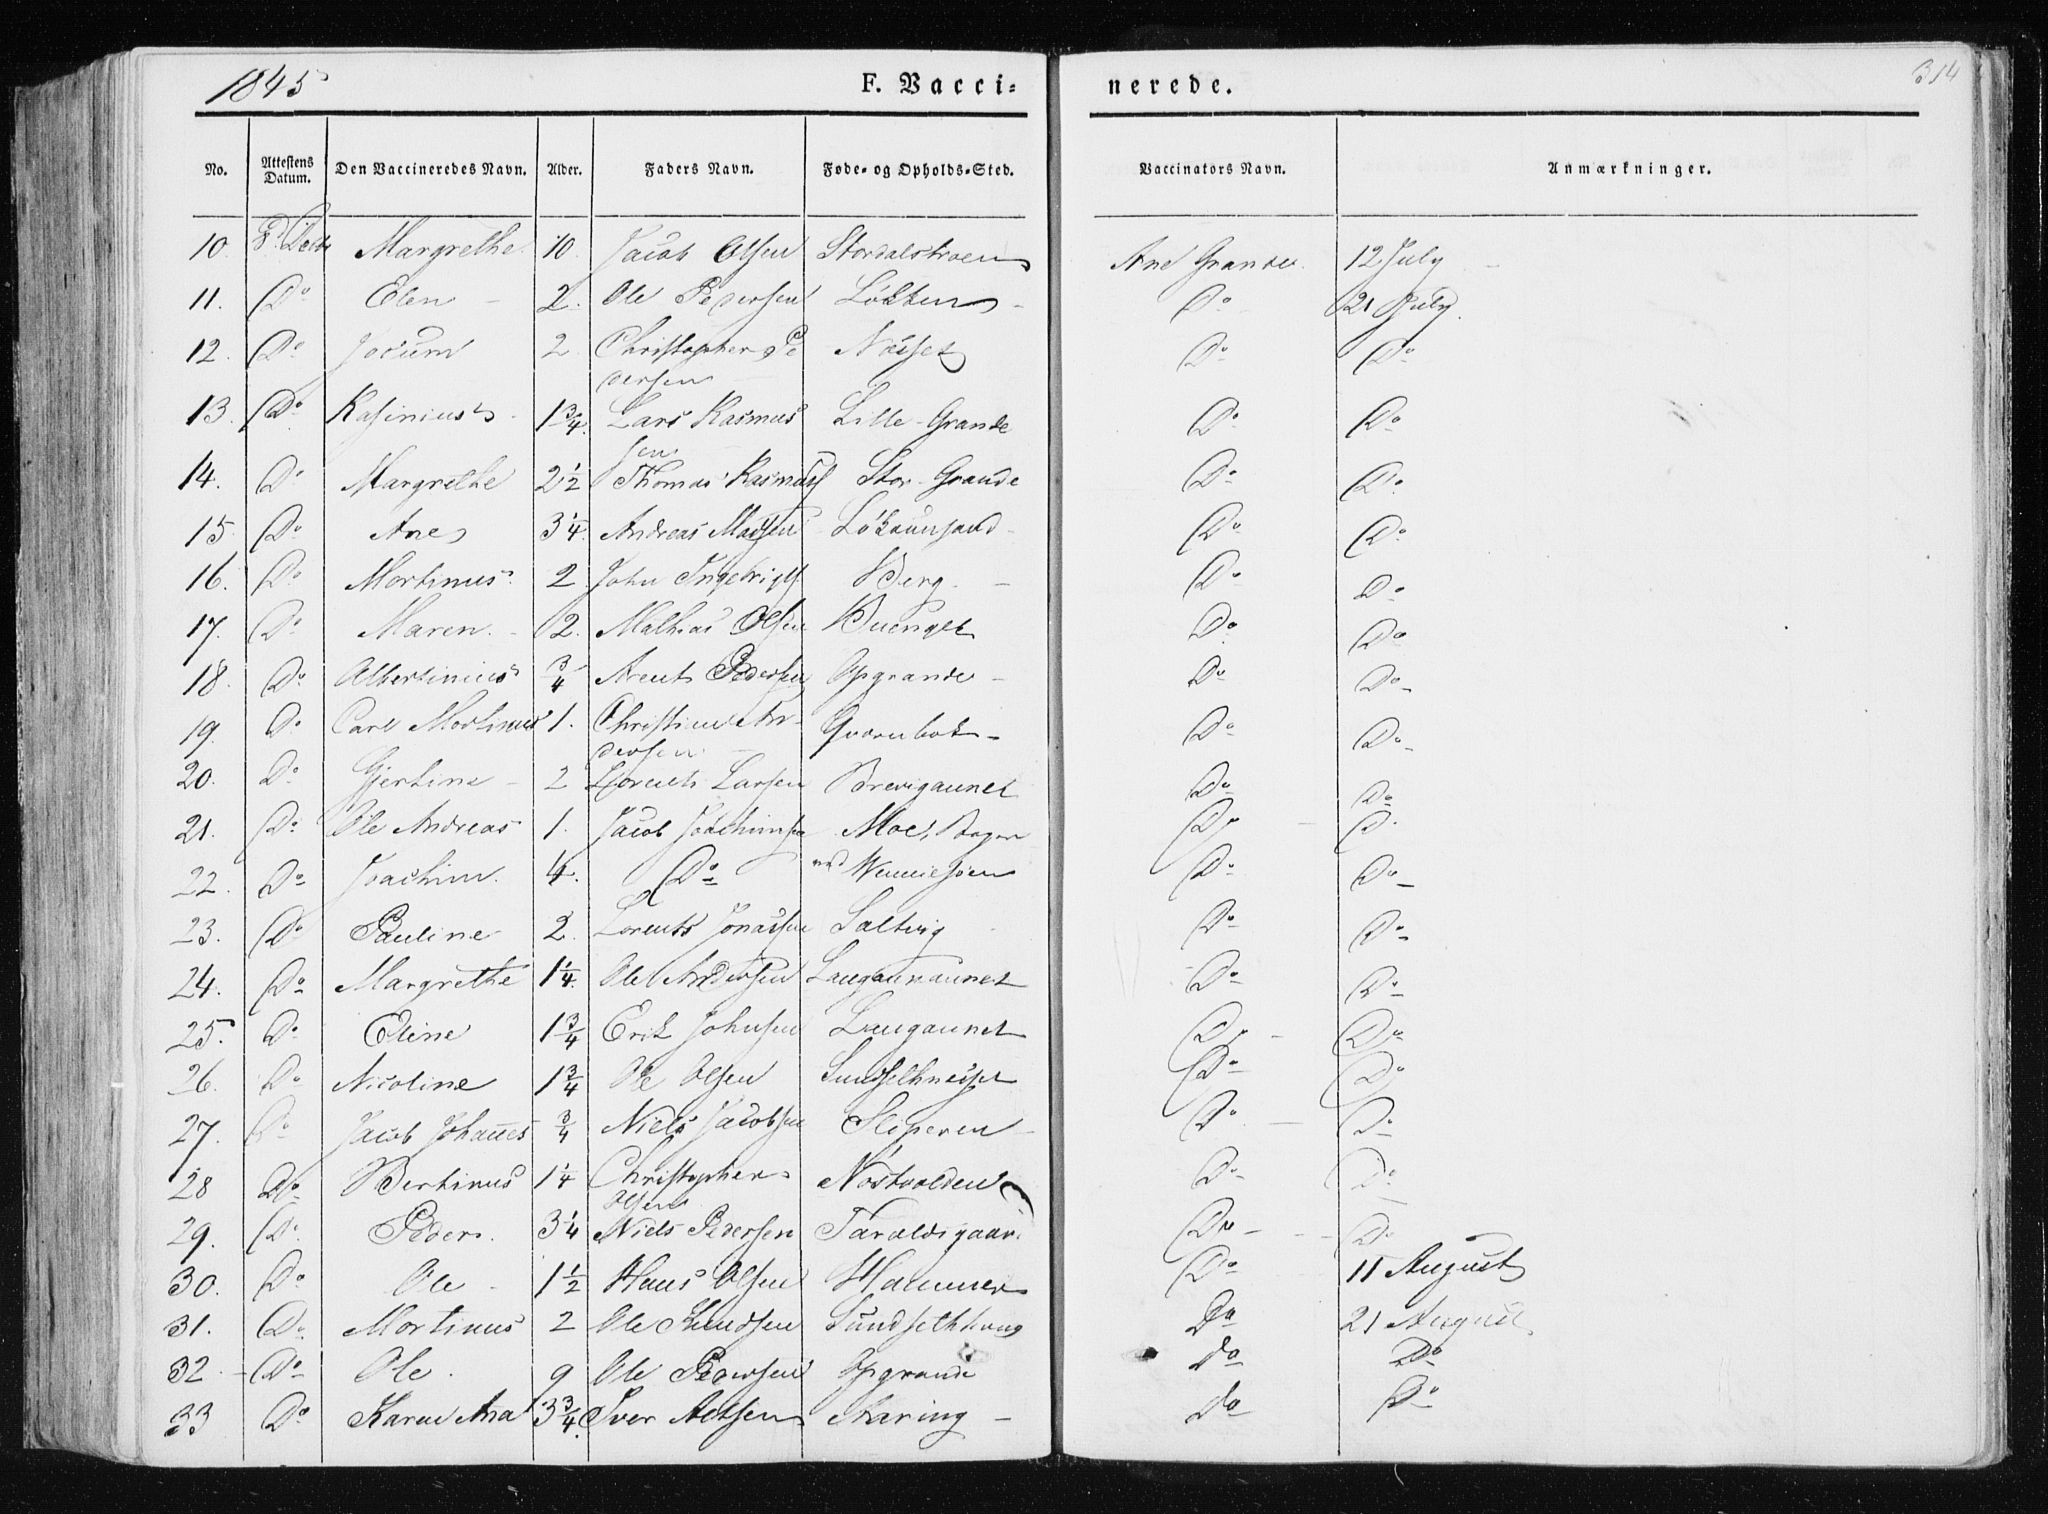 1845 F. Vacci= nerede. 314
No. Attestens Datum. Den Vaccineredes Navn. Alder. Faders Navn. Føde- og Opholds-Sted. Vaccinators Navn. Anmærkninger.
10. Margrethe 10. Jacob Olsen Stordalstrøen Ane Grande 12 July
11. Do Elen 2. Ole Pedersen Løkken Do 21 July.
12. Do 2 Christopher Pe Do Do
dersen
13. Do 1 3/4. Lars Rasmus Lille-Grande Do Do
sen
14. Do Margrethe 2 1/2 Thomas Rasmuss Stor-Grande Do Do
15. Do Ane 3 1/4. Andreas Do Do
16. Do Mortinus 2 John Berg Do Do
17. Do Maren. 2. Mathias Olsen Do Do
18. Do Albertinius 3/4 Arent Pedersen Opgrande Do Do
19. Do Carl Mortinus 1. Christian An- Do Do
dersen
20. Do Gjertine 2 Lorents Larsen Do Do
21. Do Ole Andreas 1. Jacob Joachimsen Moe, Do Do
22. Do Joachim. 4. Do Do Do
23. Do Pauline 2. Lorents Jonassen Saltvig Do Do
24. Do Margrethe 1 1/4. Ole Andersen Do Do
25. Do Eline 1 3/4 Erik Johnsen Do Do
26. Do Nicoline 1 3/4 Ole Olsen Do Do
27. Do Jacob Johannes 3/4 Niels Jacobsen Sliperen Do Do
28 Do Bertinus 1 1/4 Christopher Nøstvolden Do Do
Olsen
29. Do Peder. 3 1/4 Niels Pedersen Do Do
30. Do Ole 1 1/2 Hans Olsen Hammer Do 11 August
31. Do Mortinus 2 Ole Knudsen Do 21 August
32 Do Ole. 9 Ole Pedersen Opgrande Do Do
33 Do Karen Ana 3 3/4. Iver Do Do